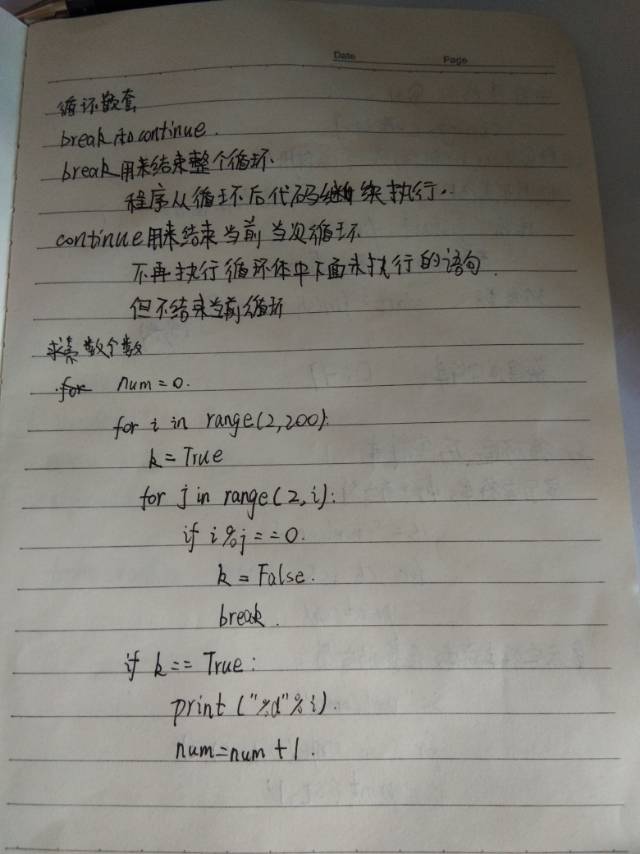 Date Page
循环嵌套
break和continue.
break用来结束整个循环.
程序从循环后代码继续执行.
continue用来结束当前当次循环
不再执行循环体中下面未执行的语句.
但不结束当前循环
求素数个数
for num=0.
for i in range(2,200):
k=True
for j in range(2,i):
if i%j==0.
k=False.
break.
if k==True:
print("%d"%i).
num=num+1.